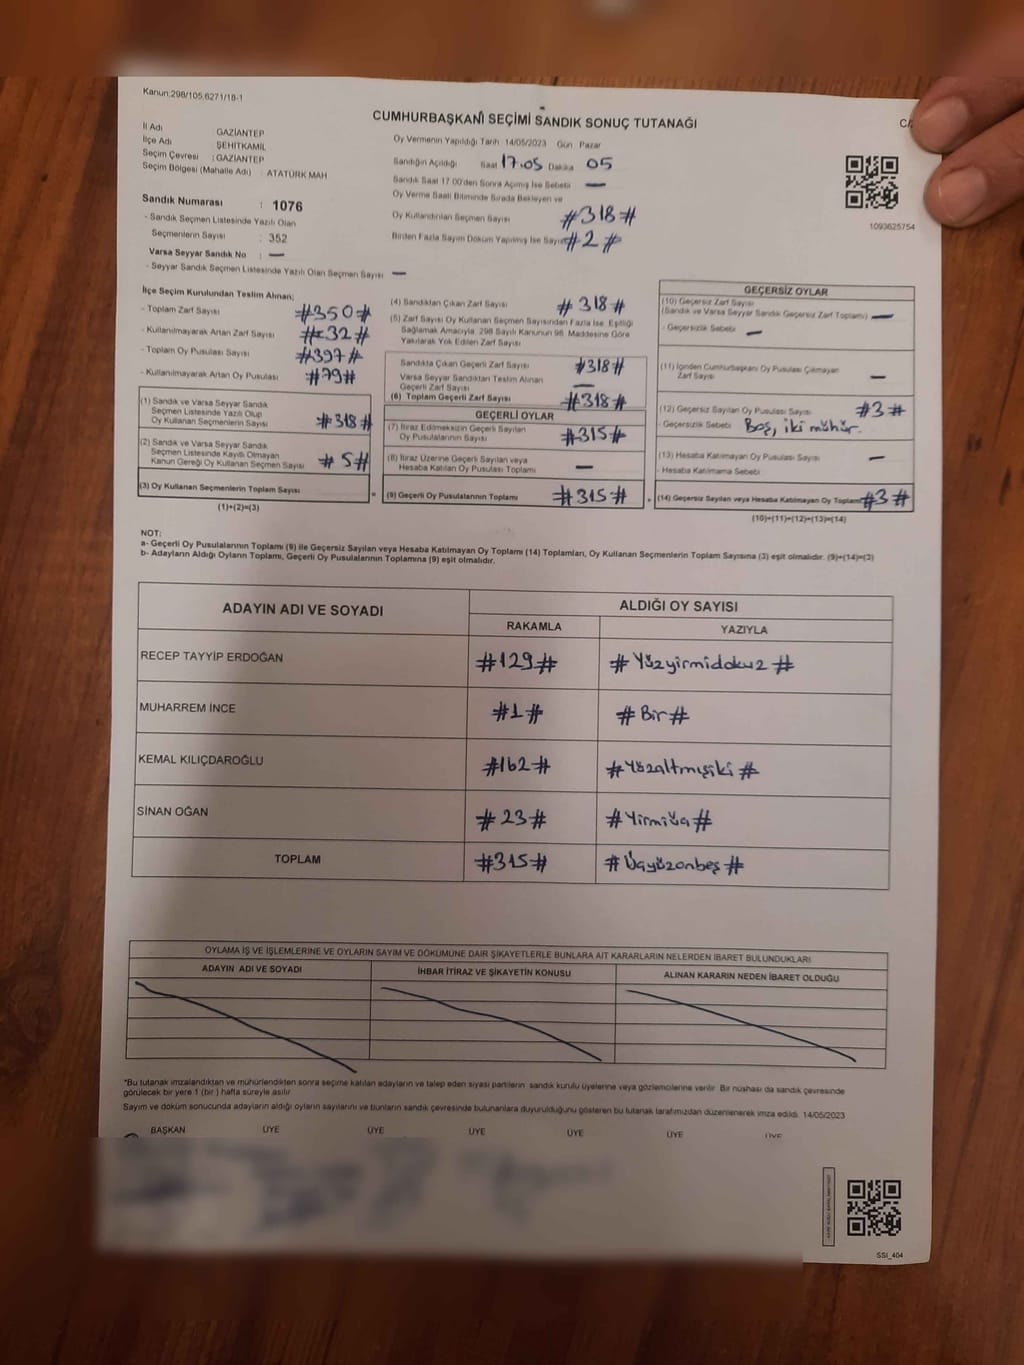 Kanun:298/105,6271/18-1
CUMHURBAŞKANI SEÇİMİ SANDIK SONUÇ TUTANAĞI
İl Adı : GAZİANTEP
İlçe Adı : ŞEHİTKAMİL
Seçim Çevresi : GAZİANTEP
Seçim Bölgesi (Mahalle Adı) : ATATÜRK MAH
Sandık Numarası : 1076
- Sandık Seçmen Listesinde Yazılı Olan
Seçmenlerin Sayısı : 352
Varsa Seyyar Sandık No : —
- Seyyar Sandık Seçmen Listesinde Yazılı Olan Seçmen Sayısı : —
Oy Vermenin Yapıldığı Tarih 14/05/2023 Gün Pazar
Sandığın Açıldığı Saat 17.05 Dakika 05
Sandık Saat 17.00'den Sonra Açımış İse Sebebi —
Oy Verme Saati Bitiminde Sırada Bekleyen ve
Oy Kullandırılan Seçmen Sayısı #318#
Birden Fazla Sayım Döküm Yapılmış İse Sayısı #2#
1093625754
İlçe Seçim Kurulundan Teslim Alınan;
- Toplam Zarf Sayısı #350#
- Kullanılmayarak Artan Zarf Sayısı #32#
- Toplam Oy Pusulası Sayısı #397#
- Kullanılmayarak Artan Oy Pusulası #79#
(1) Sandık ve Varsa Seyyar Sandık
Seçmen Listesinde Yazılı Olup
Oy Kullanan Seçmenlerin Sayısı #318#
(2) Sandık ve Varsa Seyyar Sandık
Seçmen Listesinde Kayıtlı Olmayan
Kanun Gereği Oy Kullanan Seçmen Sayısı #5#
(3) Oy Kullanan Seçmenlerin Toplam Sayısı
(1)+(2)=(3)
(4) Sandıktan Çıkan Zarf Sayısı #318#
(5) Zarf Sayısı Oy Kullanan Seçmen Sayısından Fazla İse, Eşitliği
Sağlamak Amacıyla, 298 Sayılı Kanunun 98. Maddesine Göre
Yakılarak Yok Edilen Zarf Sayısı
Sandıkta Çıkan Geçerli Zarf Sayısı #318#
Varsa Seyyar Sandıktan Teslim Alınan
Geçerli Zarf Sayısı —
(6) Toplam Geçerli Zarf Sayısı #318#
GEÇERLİ OYLAR
(7) İtiraz Edilmeksizin Geçerli Sayılan
Oy Pusulalarının Sayısı #315#
(8) İtiraz Üzerine Geçerli Sayılan veya
Hesaba Katılan Oy Pusulası Toplamı —
(9) Geçerli Oy Pusulalarının Toplamı #315#
GEÇERSİZ OYLAR
(10) Geçersiz Zarf Sayısı
(Sandık ve Varsa Seyyar Sandık Geçersiz Zarf Toplamı) —
- Geçersizlik Sebebi —
(11) İçinden Cumhurbaşkanı Oy Pusulası Çıkmayan
Zarf Sayısı —
(12) Geçersiz Sayılan Oy Pusulası Sayısı #3#
- Geçersizlik Sebebi Boş, iki mühür.
(13) Hesaba Katılmayan Oy Pusulası Sayısı —
- Hesaba Katılmama Sebebi
(14) Geçersiz Sayılan veya Hesaba Katılmayan Oy Toplamı #3#
(10)+(11)+(12)+(13)=(14)
NOT:
a- Geçerli Oy Pusulalarının Toplamı (9) ile Geçersiz Sayılan veya Hesaba Katılmayan Oy Toplamı (14) Toplamları, Oy Kullanan Seçmenlerin Toplam Sayısına (3) eşit olmalıdır. (9)+(14)=(3)
b- Adayların Aldığı Oyların Toplamı, Geçerli Oy Pusulalarının Toplamına (9) eşit olmalıdır.
ADAYIN ADI VE SOYADI ALDIĞI OY SAYISI
RAKAMLA YAZIYLA
RECEP TAYYİP ERDOĞAN #129# #Yüzyirmidokuz#
MUHARREM İNCE #1# #Bir#
KEMAL KILIÇDAROĞLU #162# #Yüzaltmışiki#
SİNAN OĞAN #23# #Yirmiüç#
TOPLAM #315# #Üçyüzonbeş#
OYLAMA İŞ VE İŞLEMLERİNE VE OYLARIN SAYIM VE DÖKÜMÜNE DAİR ŞİKAYETLERLE BUNLARA AİT KARARLARIN NELERDEN İBARET BULUNDUKLARI
ADAYIN ADI VE SOYADI İHBAR İTİRAZ VE ŞİKAYETİN KONUSU ALINAN KARARIN NEDEN İBARET OLDUĞU
*Bu tutanak imzalandıktan ve mühürlendikten sonra seçime katılan adayların ve talep eden siyasi partilerin sandık kurulu üyelerine veya gözlemcilerine verilir. Bir nüshası da sandık çevresinde
görülecek bir yere 1 (bir ) hafta süreyle asılır
Sayım ve döküm sonucunda adayların aldığı oyların sayılarını ve bunların sandık çevresinde bulunanlara duyurulduğunu gösteren bu tutanak tarafımızdan düzenlenerek imza edildi. 14/05/2023
BAŞKAN ÜYE ÜYE ÜYE ÜYE ÜYE ÜYE
SSI_404